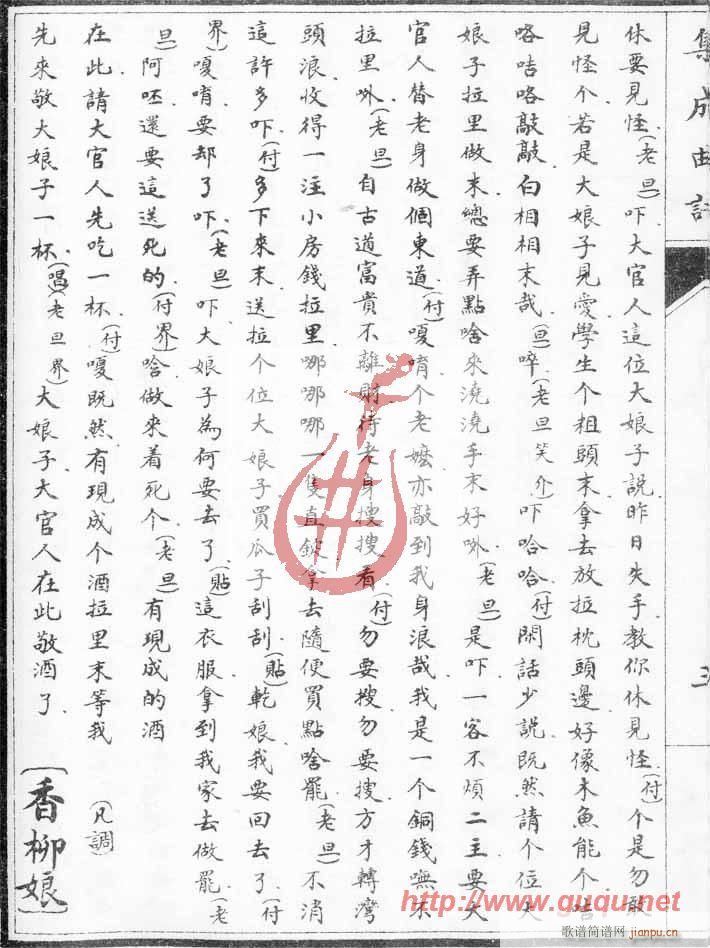 集成曲譜
休要見怪(老旦)吓大官人這位大娘子説昨日失手教你休見怪(付)个是勿敢
見怪个若是大娘子見愛學生个粗頭末拿去放拉枕頭邊好像木魚能个咭
咯咭咯敲敲白相相末哉(旦)啐(老旦笑介)吓哈哈(付)閑話少説既然請个位大
娘子拉里做末總要弄點啥來澆澆手末好㖃(老旦)是吓一客不煩二主要大
官人替老身做個東道(付)嗄唷个老嬷亦敲到我身浪哉我是一个銅錢嘸不
拉里㖃(老旦)自古道富貴不離財待老身搜搜看(付)勿要搜勿要搜方才轉灣
頭浪收得一注小房錢拉里哪哪哪一隻直錠拿去隨便買點啥罷(老旦)不消
這許多吓(付)多下來末送拉个位大娘子買瓜子刮刮(貼)乾娘我要回去了(付
界)嗄唷要却了吓(老旦)吓大娘子為何要去了(貼)這衣服拿到我家去做罷(老
旦)阿呸還要這送死的(付界)啥做來着死个(老旦)有現成的酒
在此請大官人先吃一杯(付)嗄既然有現成个酒拉里末等我
先來敬大娘子一杯(唱)(老旦界)大娘子大官人在此敬酒了
(凡調)
[香柳娘]
http://www.guqu.net
歌谱简谱网
jianpu.cn